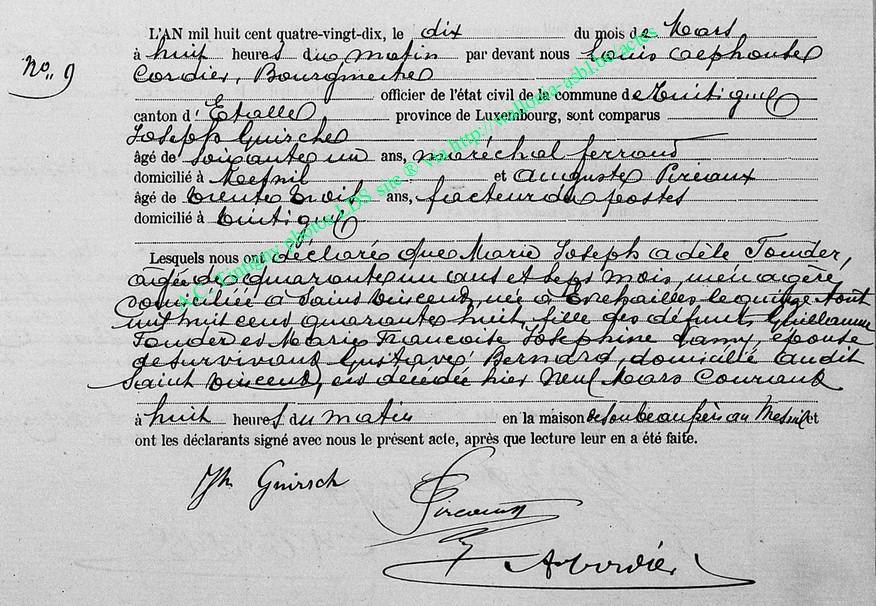 L'AN mil huit cent quatre-vingt-dix, le dix du mois de Mars
à huit heures du matin par devant nous Louis Alphonse
No 9
Cordier, Bourgmestre
officier de l'état civil de la commune de Tintigny
canton d' Etalle province de Luxembourg, sont comparus
Joseph Guirsch
âgé de soixante un ans, maréchal ferrant
domicilié à Mesnil et Auguste Pireaux
âgé de trente trois ans, facteur des postes
domicilié à Tintigny
Lesquels nous ont déclaré que Marie Joseph Adèle Tonder,
âgée de quarante un ans et sept mois, ménagère
domiciliée à Saint Vincent, née à le quinze Août
mil huit cent quarante huit, fille des défunts Guillaume
Tonder et Marie Françoise Joséphine Lamy, épouse
de survivant Gustave Bernard, domicilié audit
Saint Vincent, est décédée hier neuf Mars courant
à huit heures du matin en la maison de son beau frère au Mesnil et
ont les déclarants signé avec nous le présent acte, après que lecture leur en a été faite.
Jh Guirsch
Pireaux
A Cordier
A.C. Tintigny photos LDS site ® via http://wallonia-asbl.be/actes